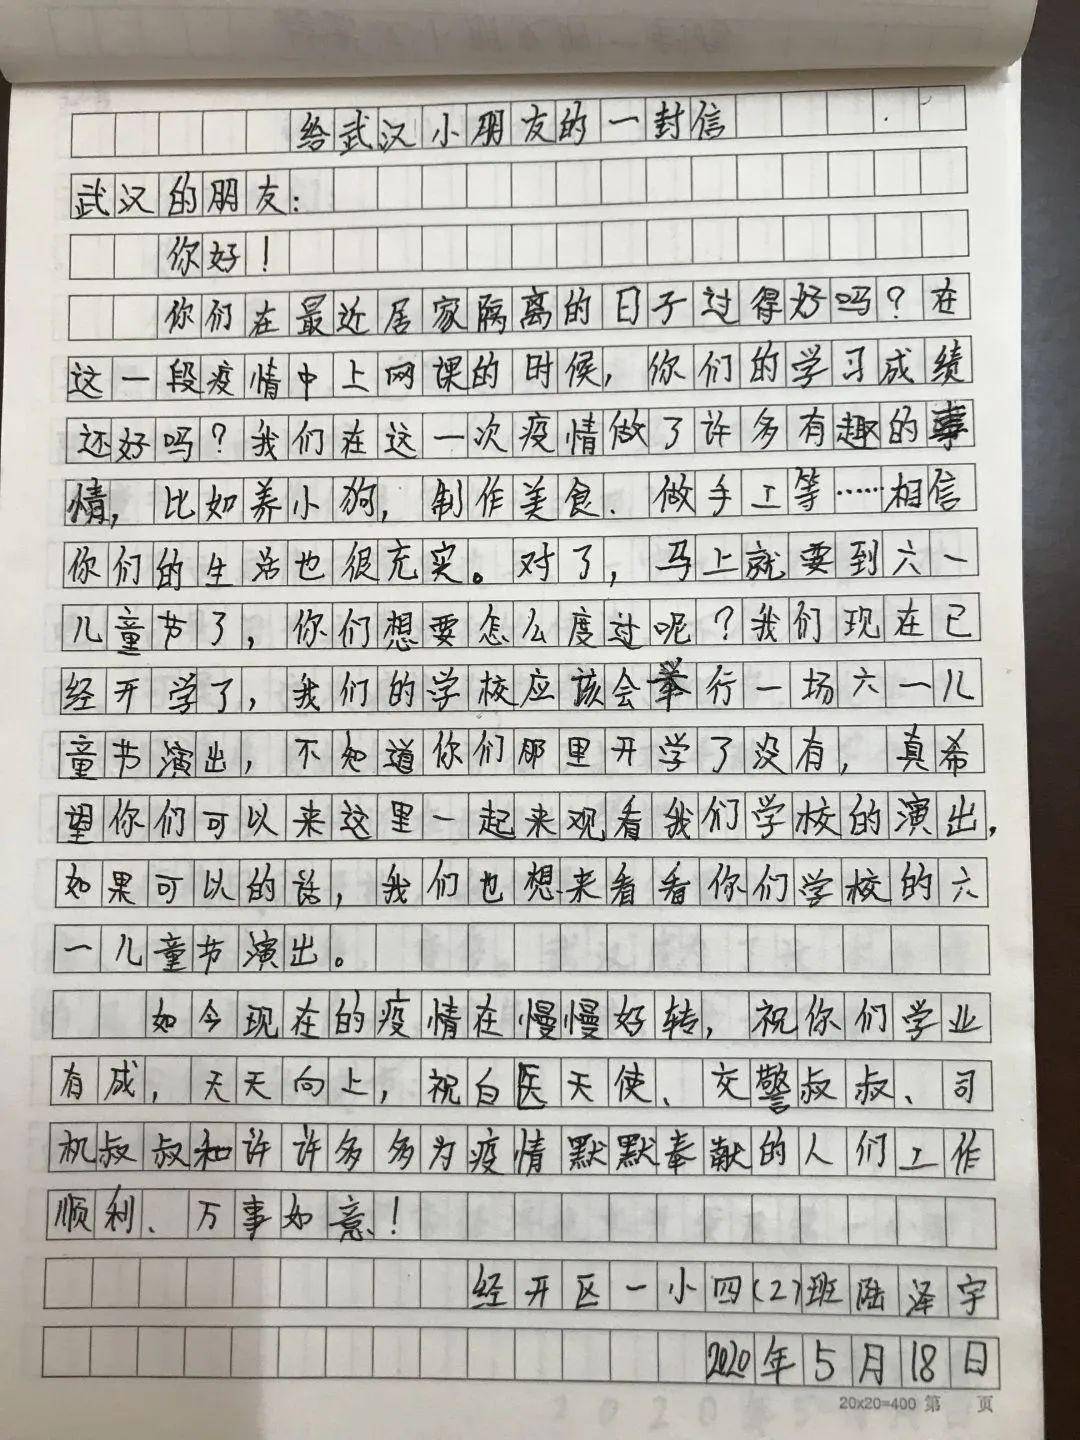 给武汉小朋友的一封信
武汉的朋友：
你好！
你们在最近居家隔离的日子过得好吗？在
这一段疫情中上网课的时候，你们的学习成绩
还好吗？我们在这一次疫情做了许多有趣的事
情，比如养小狗，制作美食、做手工等……相信
你们的生活也很充实。对了，马上就要到六一
儿童节了，你们想要怎么度过呢？我们现在已
经开学了，我们的学校应该会举行一场六一儿
童节演出，不知道你们那里开学了没有，真希
望你们可以来这里一起来观看我们学校的演出，
如果可以的话，我们也想来看看你们学校的六
一儿童节演出。
如今现在的疫情在慢慢好转，祝你们学业
有成，天天向上，祝白医天使、交警叔叔、司
机叔叔和许许多多为疫情默默奉献的人们工作
顺利、万事如意！
经开区一小四(2)班陆泽宇
2020年5月18日
20x20=400 第 页